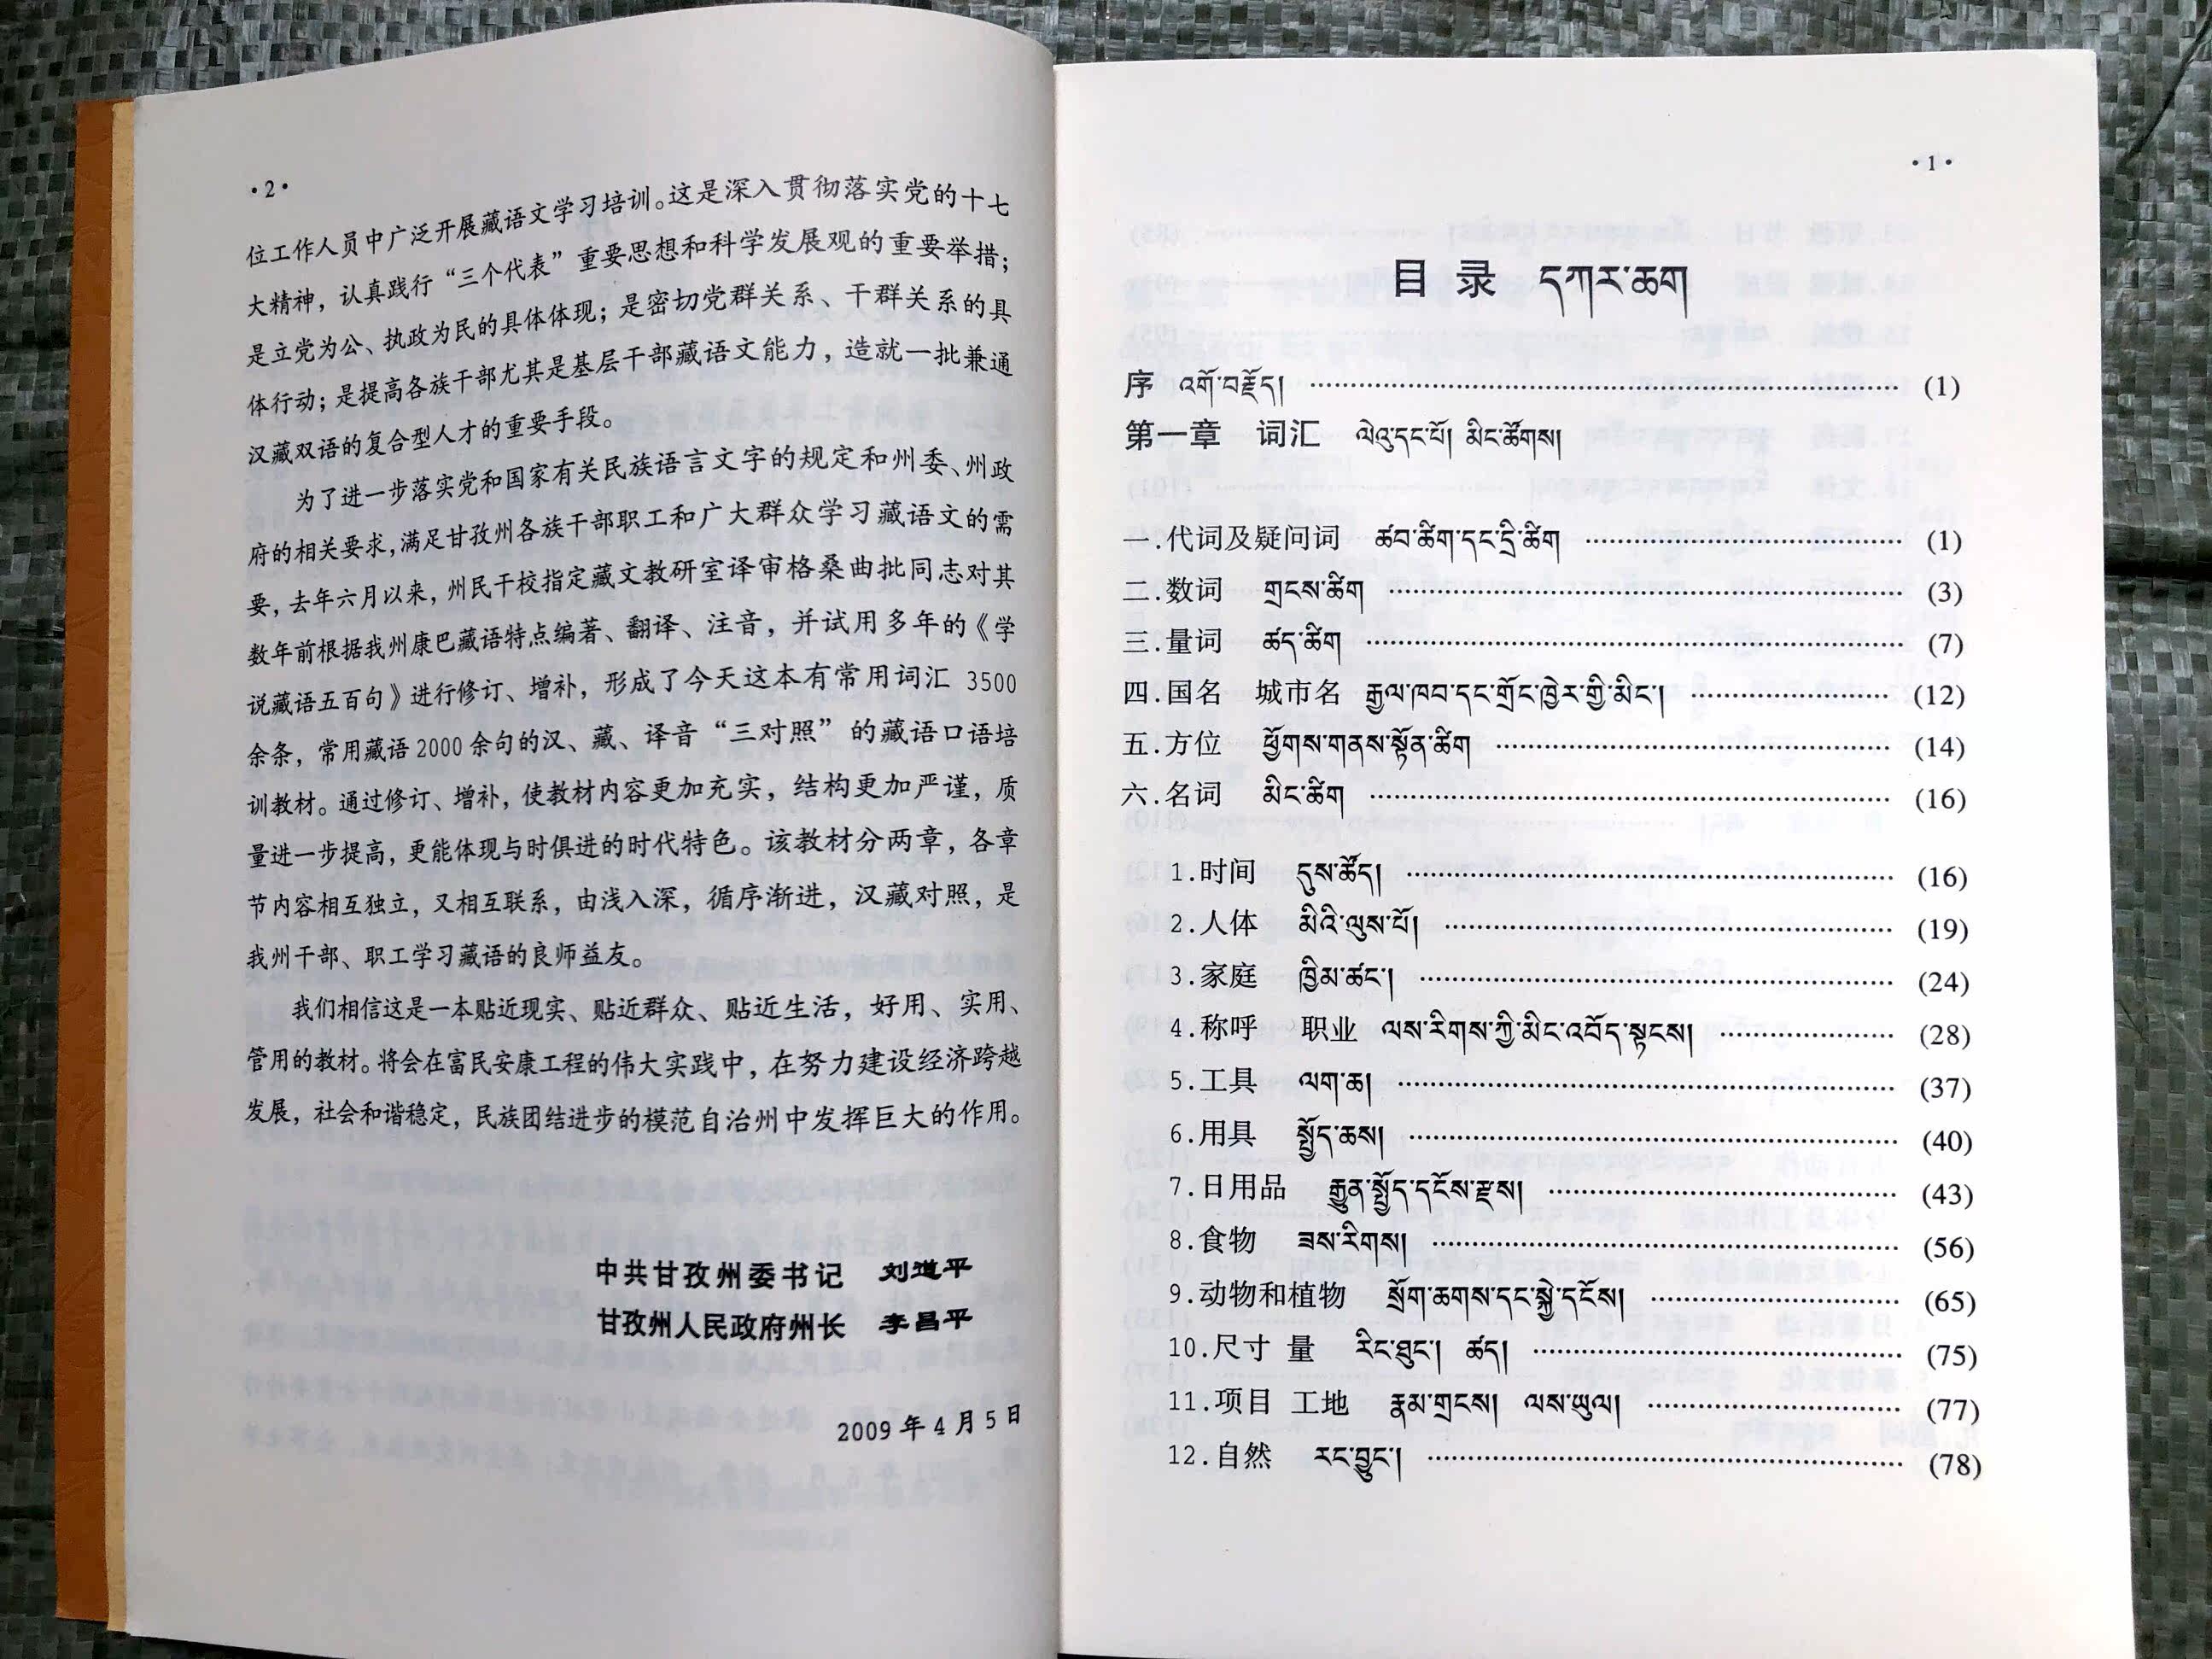 ·2·
位工作人员中广泛开展藏语文学习培训。这是深入贯彻落实党的十七
大精神，认真践行“三个代表”重要思想和科学发展观的重要举措；
是立党为公、执政为民的具体体现；是密切党群关系、干群关系的具
体行动；是提高各族干部尤其是基层干部藏语文能力，造就一批兼通
汉藏双语的复合型人才的重要手段。
为了进一步落实党和国家有关民族语言文字的规定和州委、州政
府的相关要求，满足甘孜州各族干部职工和广大群众学习藏语文的需
要，去年六月以来，州民干校指定藏文教研室译审格桑曲批同志对其
数年前根据我州康巴藏语特点编著、翻译、注音，并试用多年的《学
说藏语五百句》进行修订、增补，形成了今天这本有常用词汇 3500
余条，常用藏语 2000 余句的汉、藏、译音“三对照”的藏语口语培
训教材。通过修订、增补，使教材内容更加充实，结构更加严谨，质
量进一步提高，更能体现与时俱进的时代特色。该教材分两章，各章
节内容相互独立，又相互联系，由浅入深，循序渐进，汉藏对照，是
我州干部、职工学习藏语的良师益友。
我们相信这是一本贴近现实、贴近群众、贴近生活，好用、实用、
管用的教材。将会在富民安康工程的伟大实践中，在努力建设经济跨越
发展，社会和谐稳定，民族团结进步的模范自治州中发挥巨大的作用。
中共甘孜州委书记 刘道平
甘孜州人民政府州长 李昌平
2009 年 4 月 5 日
·1·
目 录 དཀར་ཆག
序 འགོ་བརྗོད། ………… (1)
第一章 词汇 ལེའུ་དང་པོ། མིང་ཚོགས།
一.代词及疑问词 ཚབ་ཚིག་དང་དྲི་ཚིག ………… (1)
二.数词 གྲངས་ཚིག ………… (3)
三.量词 ཚད་ཚིག ………… (7)
四.国名 城市名 རྒྱལ་ཁབ་དང་གྲོང་ཁྱེར་གྱི་མིང་། ………… (12)
五.方位 ཕྱོགས་གནས་སྟོན་ཚིག ………… (14)
六.名词 མིང་ཚིག ………… (16)
1.时间 དུས་ཚོད། ………… (16)
2.人体 མིའི་ལུས་པོ། ………… (19)
3.家庭 ཁྱིམ་ཚང་། ………… (24)
4.称呼 职业 ལས་རིགས་ཀྱི་མིང་འབོད་སྟངས། ………… (28)
5.工具 ལག་ཆ། ………… (37)
6.用具 སྤྱོད་ཆས། ………… (40)
7.日用品 རྒྱུན་སྤྱོད་དངོས་རྫས། ………… (43)
8.食物 ཟས་རིགས། ………… (56)
9.动物和植物 སྲོག་ཆགས་དང་སྐྱེ་དངོས། ………… (65)
10.尺寸 量 རིང་ཐུང་། ཚད། ………… (75)
11.项目 工地 རྣམ་གྲངས། ལས་ཡུལ། ………… (77)
12.自然 རང་བྱུང་། ………… (78)